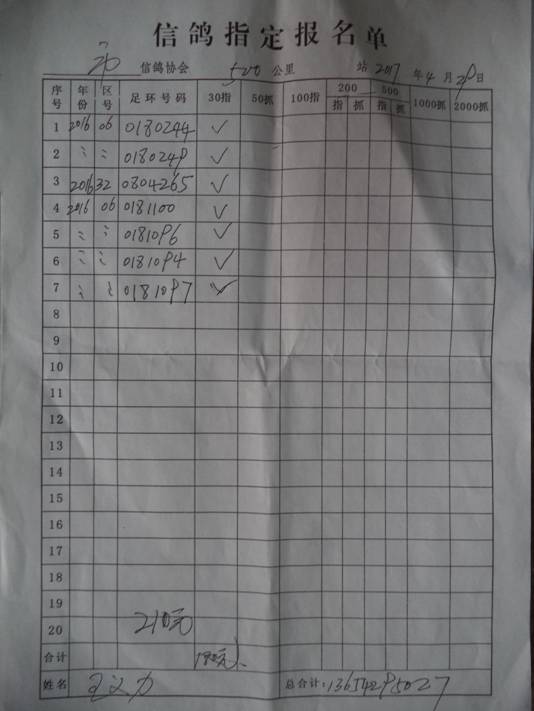 信鸽指定报名单
信鸽协会 500 公里 站 2017 年 4 月 29 日
序号 年份 区号 足环号码 30指 50抓 100指 200 指 抓 500 指 抓 1000抓 2000抓
1 2016 06 0180244 ✓
2 〃 〃 0180249 ✓
3 2016 32 0804265 ✓
4 2016 06 0181100 ✓
5 〃 〃 0181096 ✓
6 〃 〃 0181094 ✓
7 〃 〃 0181097 ✓
8
9
10
11
12
13
14
15
16
17
18
19
20 210元
合计
姓名 王义力 总合计: 13654295027